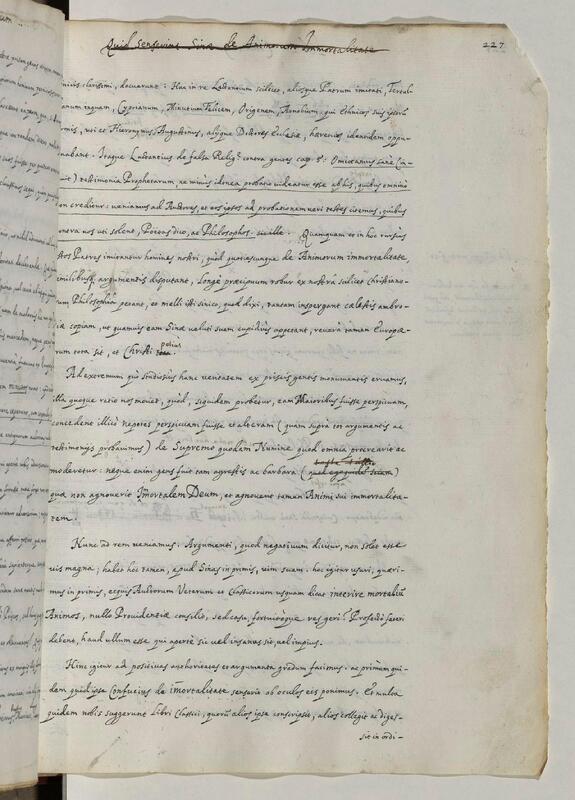 Quid senserint Sinæ de Animorum Immortalitate
227
minus clarissimi, docuerunt: Hac in re Lactantium scilicet, aliosque Patrum imitati, Tertul-
lianum inquam, Cyprianum, Minutium Felicem, Origenem, Arnobium, qui Ethnicos suis ipsorũ
armis, uti et Hieronymus Augustinus, alijque Doctores Ecclesiæ, hæreticos identidem oppu-
gnabant. Itaque Lactantius de falsa Relig.e contra gentes cap. 5: Omittamus sanè (in-
quit) testimonia Prophetarum, ne minùs idonea probatio videatur esse ab his, quibus omnino
non creditur: veniamus ad Auctores, et eos ipsos ad probationem veri testes citemus, quibus
contra nos uti solent, Poetas dico, ac Philosophos. sic ille. Quamquam et in hoc rursùs
istos Patres imitantur homines nostri, quòd quotiescunque de Animorum immortalitate,
similibusq; argumentis disputant, longè præcipuum robur ex nostra scilicet christiano-
rum Philosophia petant, et melli isti sinico, quod dixi, tantam inspergant cælestis ambro-
siæ copiam, ut quamvis eam Sinæ veluti suam cupidiùs appetant, reverà tamen Europæo-
rum tota sit, et Christi potiùs
Ad extremum qui studiosiùs hanc veritatem ex priscis gentis monumentis eruamus,
illa quoque ratio nos movet, quòd, siquidem probetur, eam Maioribus fuisse perspicuam,
concedent illicò nepotes perspicuam fuisse et alteram (quam suprà tot argumentis ac
testimonijs probavimus) de Supremo quodam Numine quod omnia procrearit ac
moderetur: neque enim gens fuit tam agrestis ac barbara
quæ non agnoverit Immortalem Deum, et agnoverit tamen Animi sui immortalita-
tem.
Nunc ad rem veniamus. Argumenti, quod negativum dicitur, non solet esse
vis magna; habet hoc tamen, apud Sinas in primis, vim suam. hoc igitur usuri, quæri-
mus in primis, ecquis Auctorum Veterum et Classicorum usquam dicat interire mortaliũ
Animos, nullo Providentiæ consilio, sed casu, fortuitòque res geri? Profectò fateri
debent, haud ullum esse qui apertè sic vel insanus sit, vel impius.
Hinc igitur ad positivas authoritates et argumenta gradum facimus. ac primùm qui-
dem quid ipse Confucius de immortalitate senserit ab oculos eis ponimus. Et multa
quidem nobis suggerunt Libri Classici, quorũ alios ipse conscripsit, alios collegit ac diges-
sit in ordi-